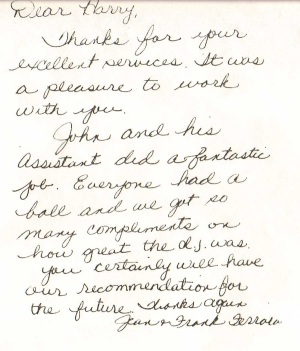 Dear Harry,
Thanks for your
excellent services. It was
a pleasure to work
with you.
John and his
Assistant did a fantastic
job. Everyone had a
ball and we got so
many compliments on
how great the d.j. was.
You certainly will have
our recommendation for
the future. Thanks again
Jean & Frank